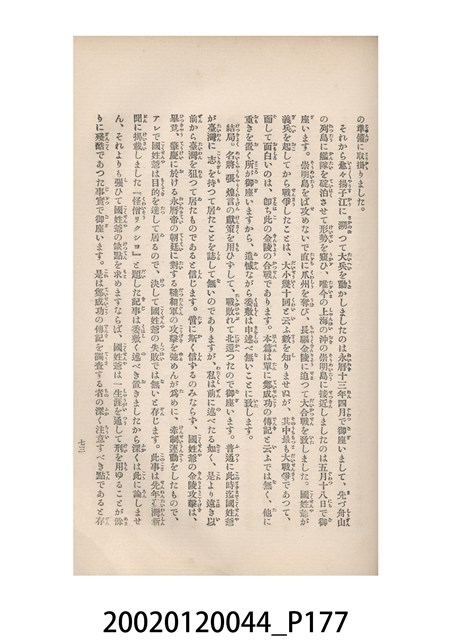 の準備に取掛りました。
それから愈々揚子江に溯つて大兵を動かしましたのは永曆十三年四月で御座いまして、先づ舟山
の列島に艦隊を碇泊させて形勢を窺ひ、唯今の上海の沖の崇明島に接近しましたのは五月十八日で御
座います。崇明島をば攻めないで直に瓜州を奪ひ、長驅金陵に迫つて大合戰を致しました。國姓爺が
義兵を起してから戰爭したことは、大小幾十回と云ふ數を知りませぬが、其中最も大戰爭であつて、
而して面白いのは、卽ち此の金陵の合戰であります。本篇は單に鄭成功の傳記と云ふでは無く、他に
重きを置く所が御座いますから、遺憾ながら委敷は申述べ無いことに致します。
結局、名將張煌言の獻策を用ひずして、戰敗れて北還つたので御座います。普通に此時迄國姓爺
が臺灣に志を持つて居たことを誌して無いのでありますが、私は前に述べたる如く、是より遠き以
前から臺灣を狙つて居たものであると信じます。啻に斯く信ずるのみならず、國姓爺の金陵攻擊は、
畢竟、肇慶に於ける永曆帝の朝廷に對する韃靼軍の攻擊を弛めんが爲めに、牽制運動をしたもので、
アレで國姓爺は目的を達して居るので、決して國姓爺の失敗では無いと存じます。此事は先年臺灣新
聞に揭載しました『怪僧リクシヨ』と題した記事は委敷く述べき置きましたから深くは此に論じませ
ん、それよりも强ひて國姓爺の缺點を求めますならば、國姓爺は一生涯を通して刑を用ゆることが餘
りに殘酷であつた事實で御座います。是は鄭成功の傳記を調査する者の深く注意すべき點であると存
七三
20020120044_P177